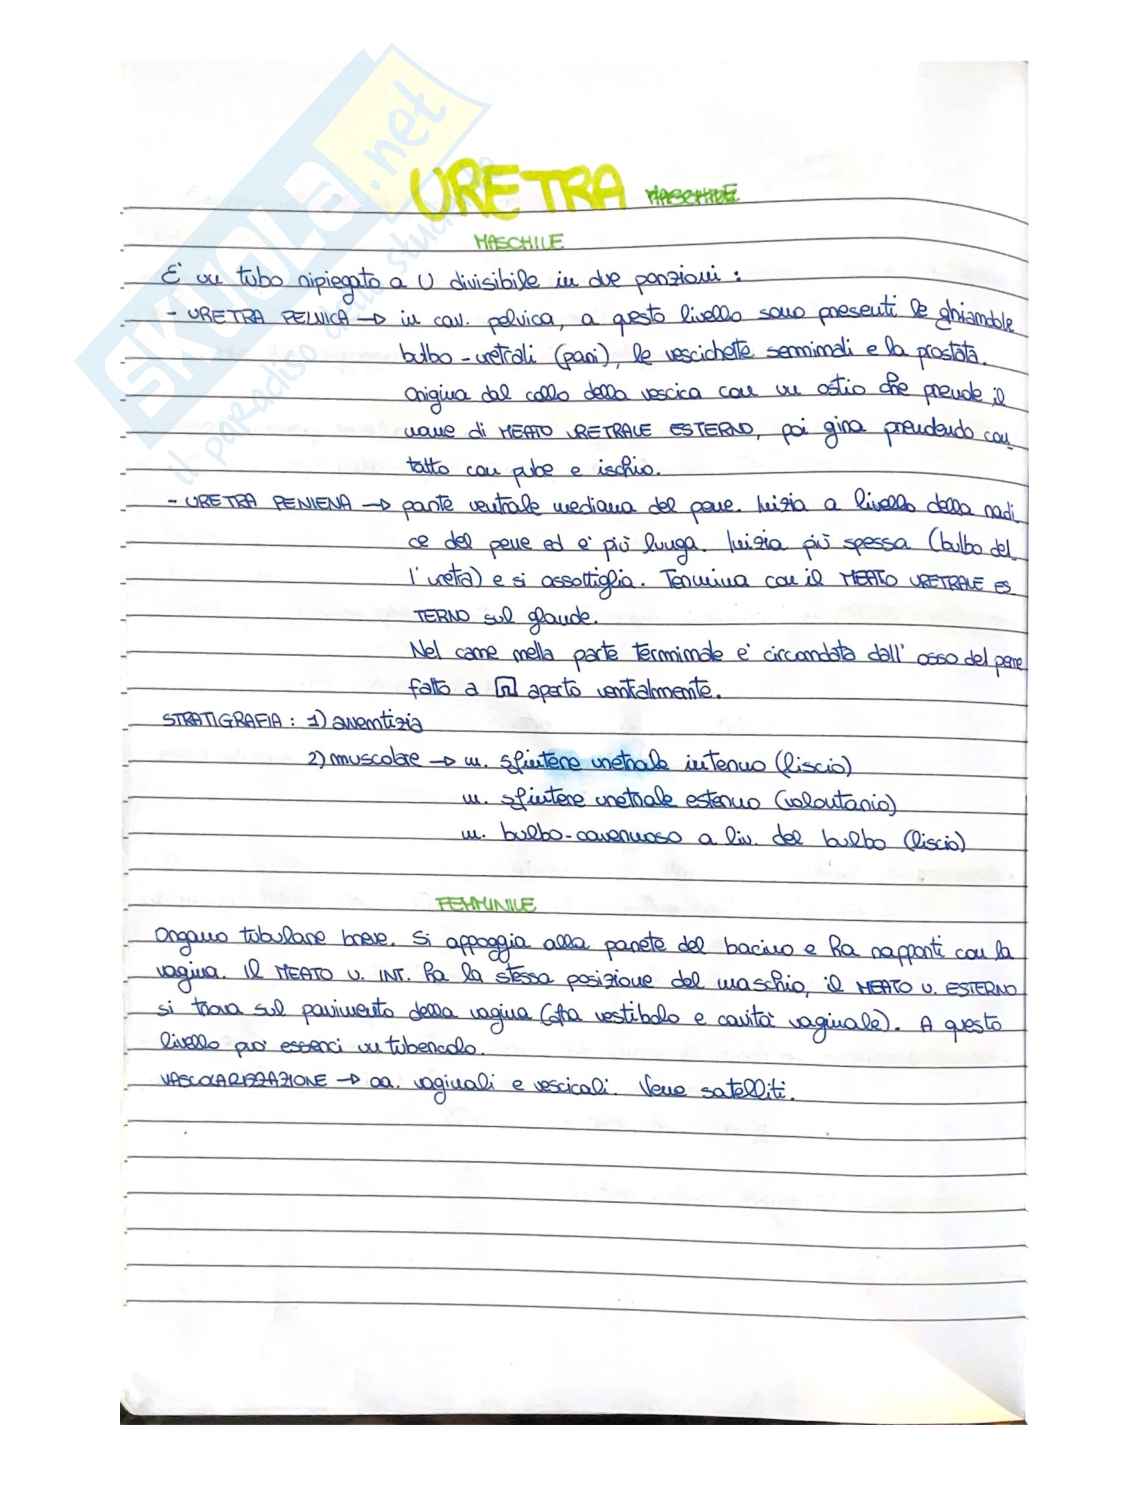 SKUOLA.net
il paradiso dello studente
URETRA MASCHILE
MASCHILE
E' un tubo ripiegato a U divisibile in due porzioni:
- URETRA PELVICA → in cav. pelvica, a questo livello sono presenti le ghiandole
bulbo-uretrali (pari), le vescichette seminali e la prostata.
Origina dal collo della vescica con un ostio che prende il
nome di MEATO URETRALE ESTERNO, poi gira prendendo con
tatto con pube e ischio.
- URETRA PENIENA → parte ventrale mediana del pene. Inizia a livello della radi
ce del pene ed e' più lunga. Inizia più spessa (bulbo del
l'uretra) e si assottiglia. Termina con il MEATO URETRALE ES
TERNO sul glande.
Nel cane nella parte terminale e' circondata dall'osso del pene
fatto a aperto ventralmente.
STRATIGRAFIA: 1) avventizia
2) muscolare → m. sfintere uretrale interno (liscio)
m. sfintere uretrale esterno (volontario)
m. bulbo-cavernoso a liv. del bulbo (liscio)
FEMMINILE
Organo tubulare breve. Si appoggia alla parete del bacino e ha rapporti con la
vagina. Il MEATO U. INT. ha la stessa posizione del maschio, il MEATO U. ESTERNO
si trova sul pavimento della vagina (tra vestibolo e cavità vaginale). A questo
livello può esserci un tubercolo.
VASCOLARIZZAZIONE → aa. vaginali e vescicali. Vene satelliti.